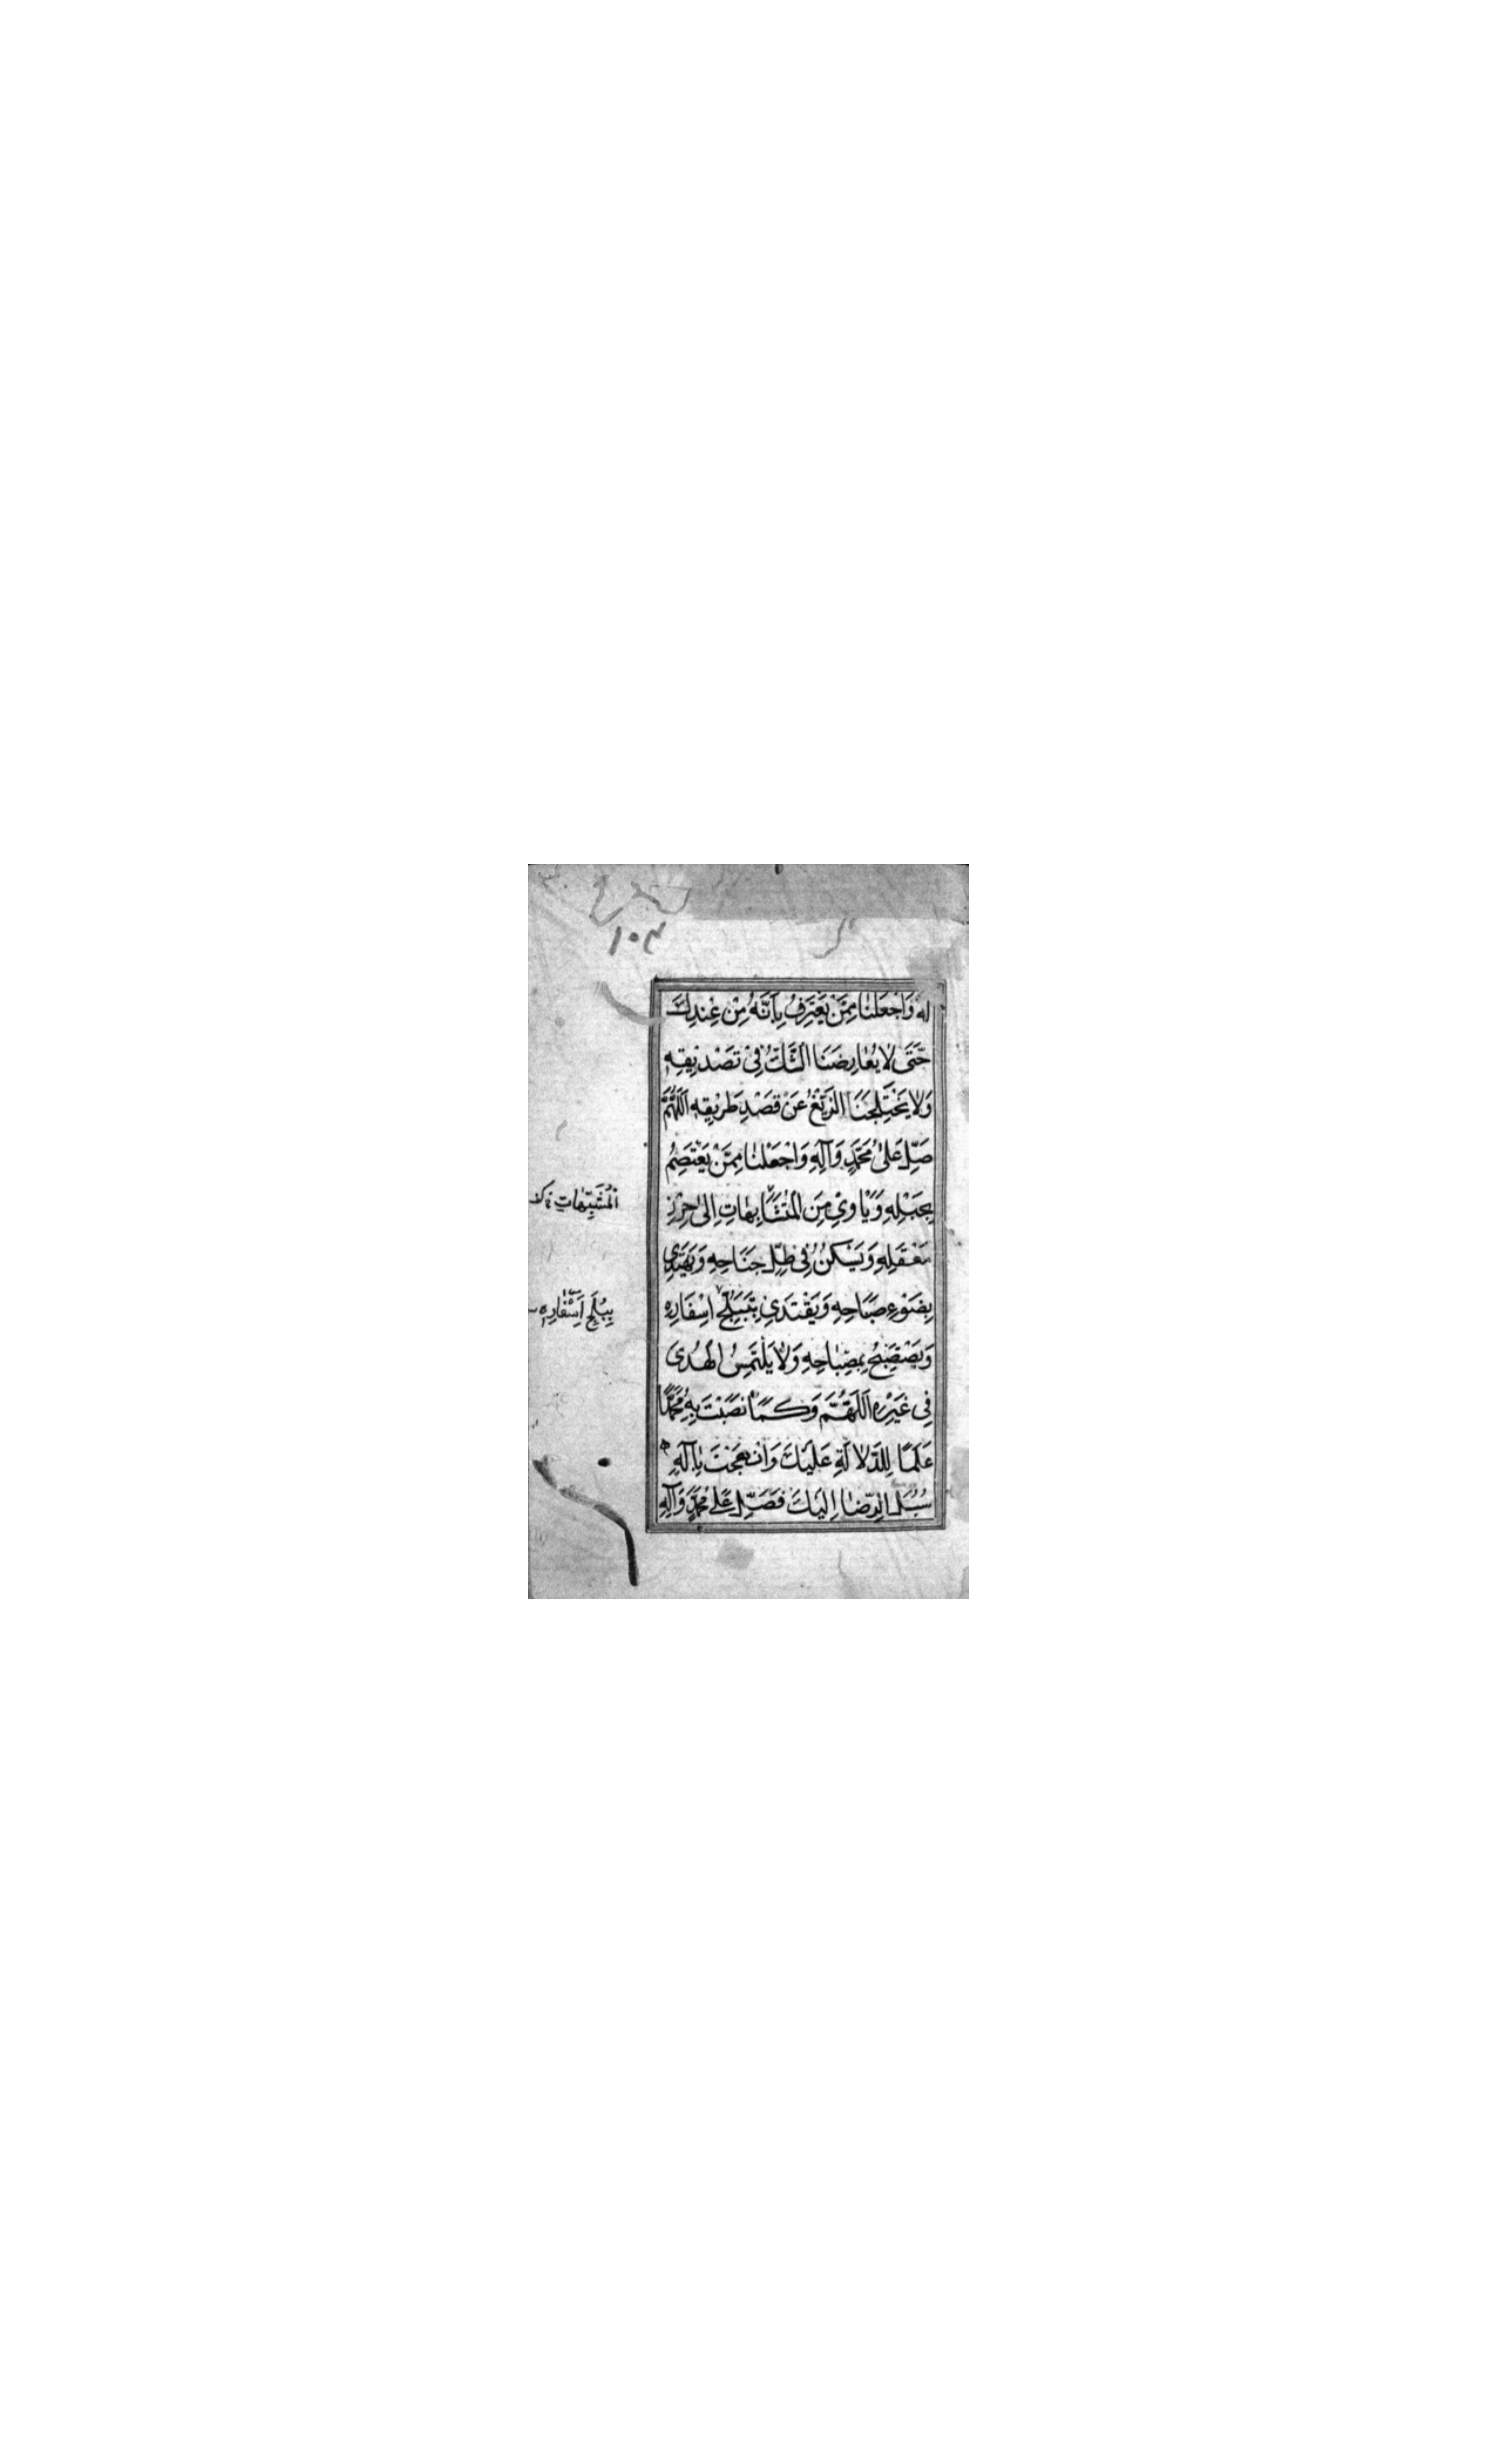 ١٠٣
لَهُ وَاجْعَلْنَا مِمَّنْ يَعْتَرِفُ بِاَنَّهُ مِنْ عِنْدِكَ
حَتّٰى لَا يُعَارِضَنَا الشَّكُّ فِى تَصْدِيقِهِ
وَلَا يَخْتَلِجَنَا الزَّيْغُ عَنْ قَصْدِ طَرِيقِهِ اَللّٰهُمَّ
صَلِّ عَلٰى مُحَمَّدٍ وَآلِهِ وَاجْعَلْنَا مِمَّنْ يَعْتَصِمُ
بِحَبْلِهِ وَيَاْوِى مِنَ الْمُتَشَابِهَاتِ اِلٰى حِرْزِ
الْمُشَبِّهَاتِ
مَعْقَلِهِ وَيَسْكُنُ فِى ظِلِّ جَنَاحِهِ وَيَهْتَدِى
بِضَوْءِ صَبَاحِهِ وَيَقْتَدِى بِتَبَلُّجِ اِسْفَارِهِ
بِبُلَجِ اَسْفَارِهِ
وَيَصْتَصْبِحُ بِمِصْبَاحِهِ وَلَا يَلْتَمِسُ الْهُدٰى
فِى غَيْرِهِ اَللّٰهُمَّ وَكَمَا نَصَبْتَ بِهِ مُحَمَّدًا
عَلَمًا لِلدَّلَالَةِ عَلَيْكَ وَاَنْهَجْتَ بِآلِهِ
سُبُلَ الرِّضَا اِلَيْكَ فَصَلِّ عَلٰى مُحَمَّدٍ وَآلِهِ